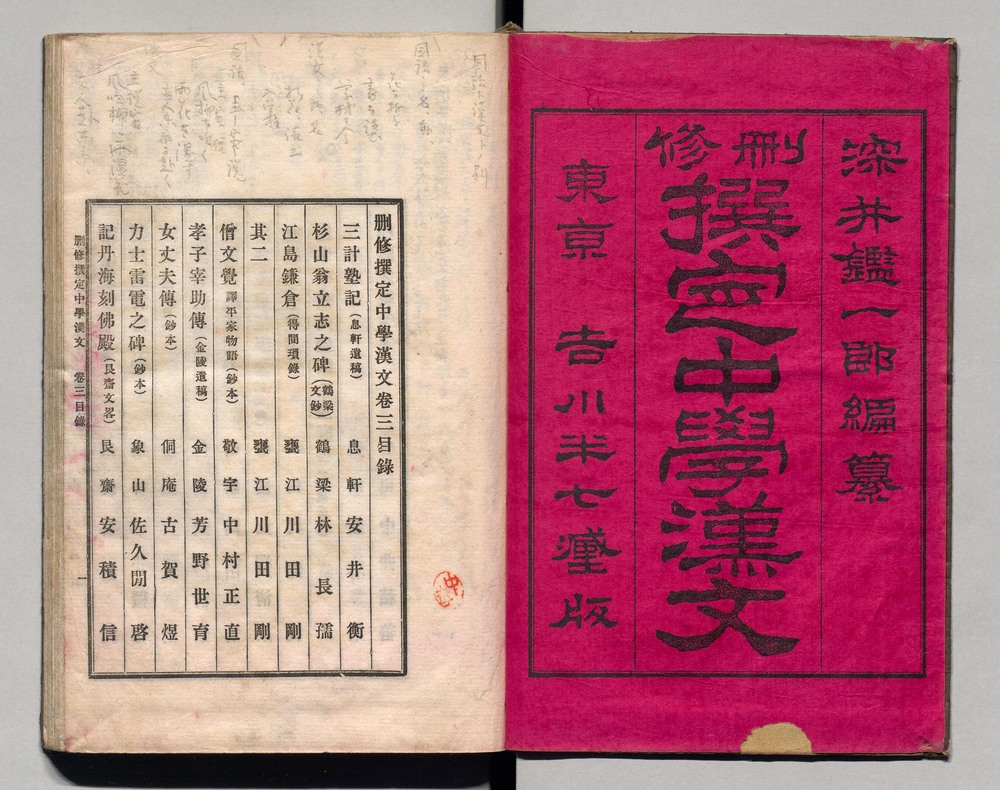 深井鑑一郎編纂
刪修
撰定中學漢文
東京 吉川半七藏版
刪修撰定中學漢文卷三目錄
三計塾記(息軒遺稿) 息軒 安井 衡
杉山翁立志之碑(鶴梁文鈔) 鶴梁 林 長孺
江島鎌倉(得間瑣錄) 甕江 川田 剛
其二 甕江 川田 剛
僧文覺 譯平家物語(鈔本) 敬宇 中村正直
孝子宰助傳(金陵遺稿) 金陵 芳野世育
女丈夫傳(鈔本) 侗庵 古賀 煜
力士雷電之碑(鈔本) 象山 佐久間 啓
記丹海刻佛殿(艮齋文畧) 艮齋 安積 信
刪修撰定中學漢文 卷三目錄 一